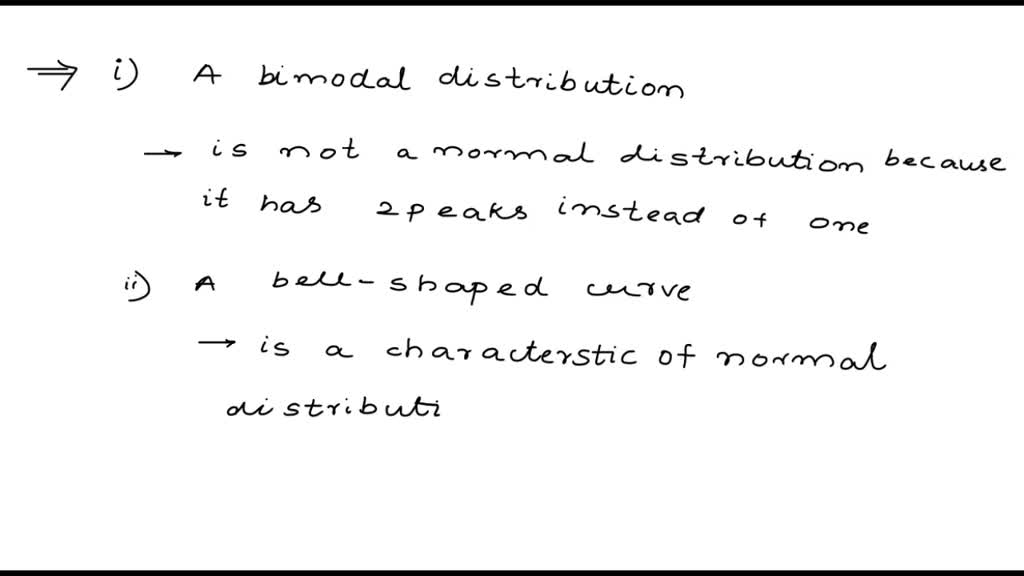 ⇒ i) A bimodal distribution
→ is not a normal distribution because
it has 2 peaks instead of one
ii) A bell-shaped curve
→ is a characterstic of normal
distributi